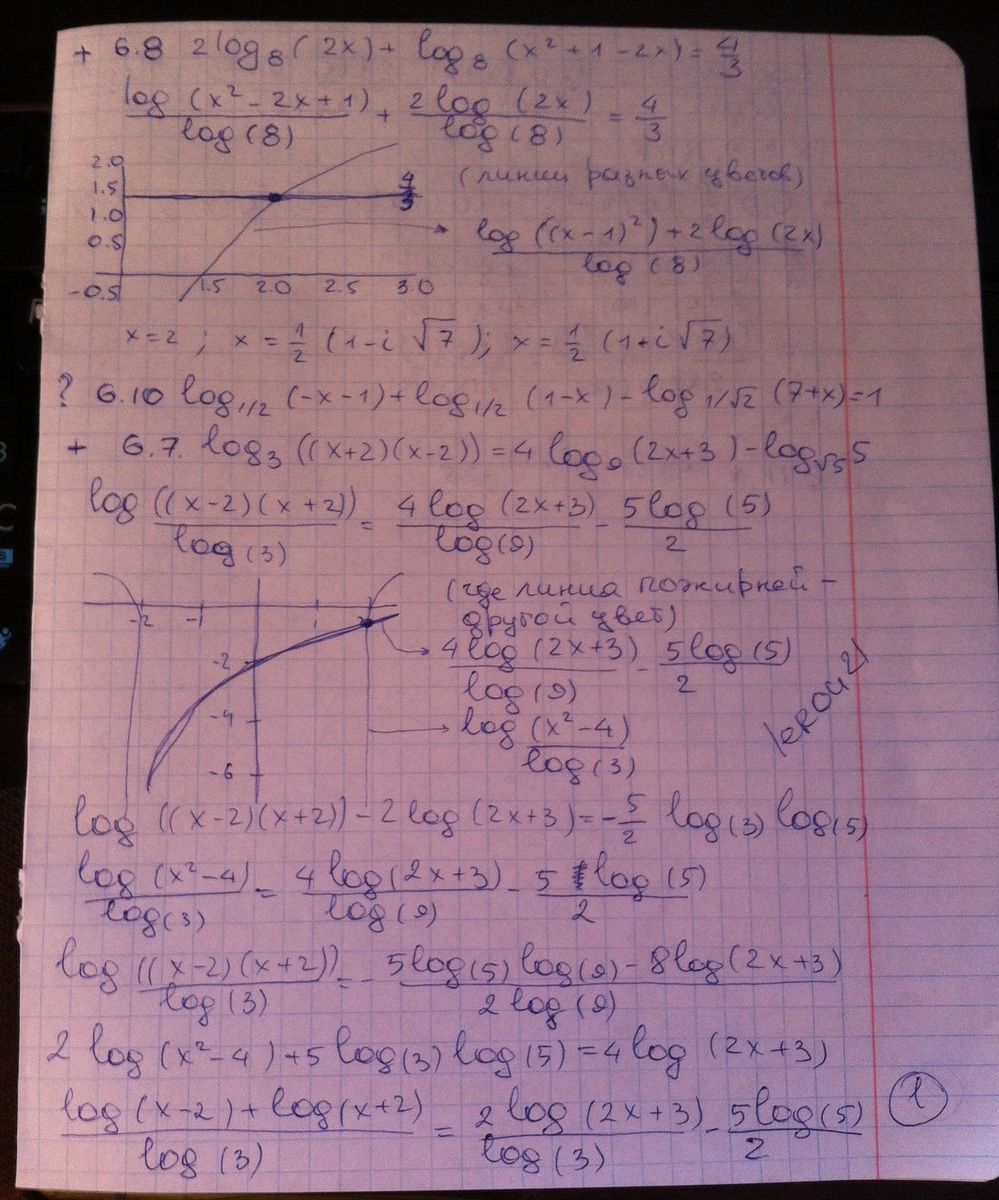 + 6.8 2log₈(2x) + log₈(x²+1-2x) = 4/3
log(x²-2x+1)/log(8) + 2log(2x)/log(8) = 4/3
2.0
1.5
1.0
0.5
-0.5
4/3
1.5 2.0 2.5 3.0
(линии разных цветов)
log((x-1)²)+2log(2x)/log(8)
x=2; x = 1/2 (1-i√7); x = 1/2 (1+i√7)
? 6.10 log₁/₂(-x-1)+log₁/₂(1-x)-log₁/√₂(7+x)=1
+ 6.7. log₃((x+2)(x-2))=4log₉(2x+3)-log√₅5
log((x-2)(x+2))/log(3) = 4log(2x+3)/log(9) - 5log(5)/2
-2 -1
-2
-4
-6
(где линия пожирней -
другой цвет)
4log(2x+3)/log(9) - 5log(5)/2
log(x²-4)/log(3)
log((x-2)(x+2))-2log(2x+3)=-5/2 log(3) log(5)
log(x²-4)/log(3) = 4log(2x+3)/log(9) - 5log(5)/2
log((x-2)(x+2))/log(3) = - 5log(5)log(9)-8log(2x+3)/2log(9)
2log(x²-4)+5log(3)log(5)=4log(2x+3)
log(x-2)+log(x+2)/log(3) = 2log(2x+3)/log(3) - 5log(5)/2
1